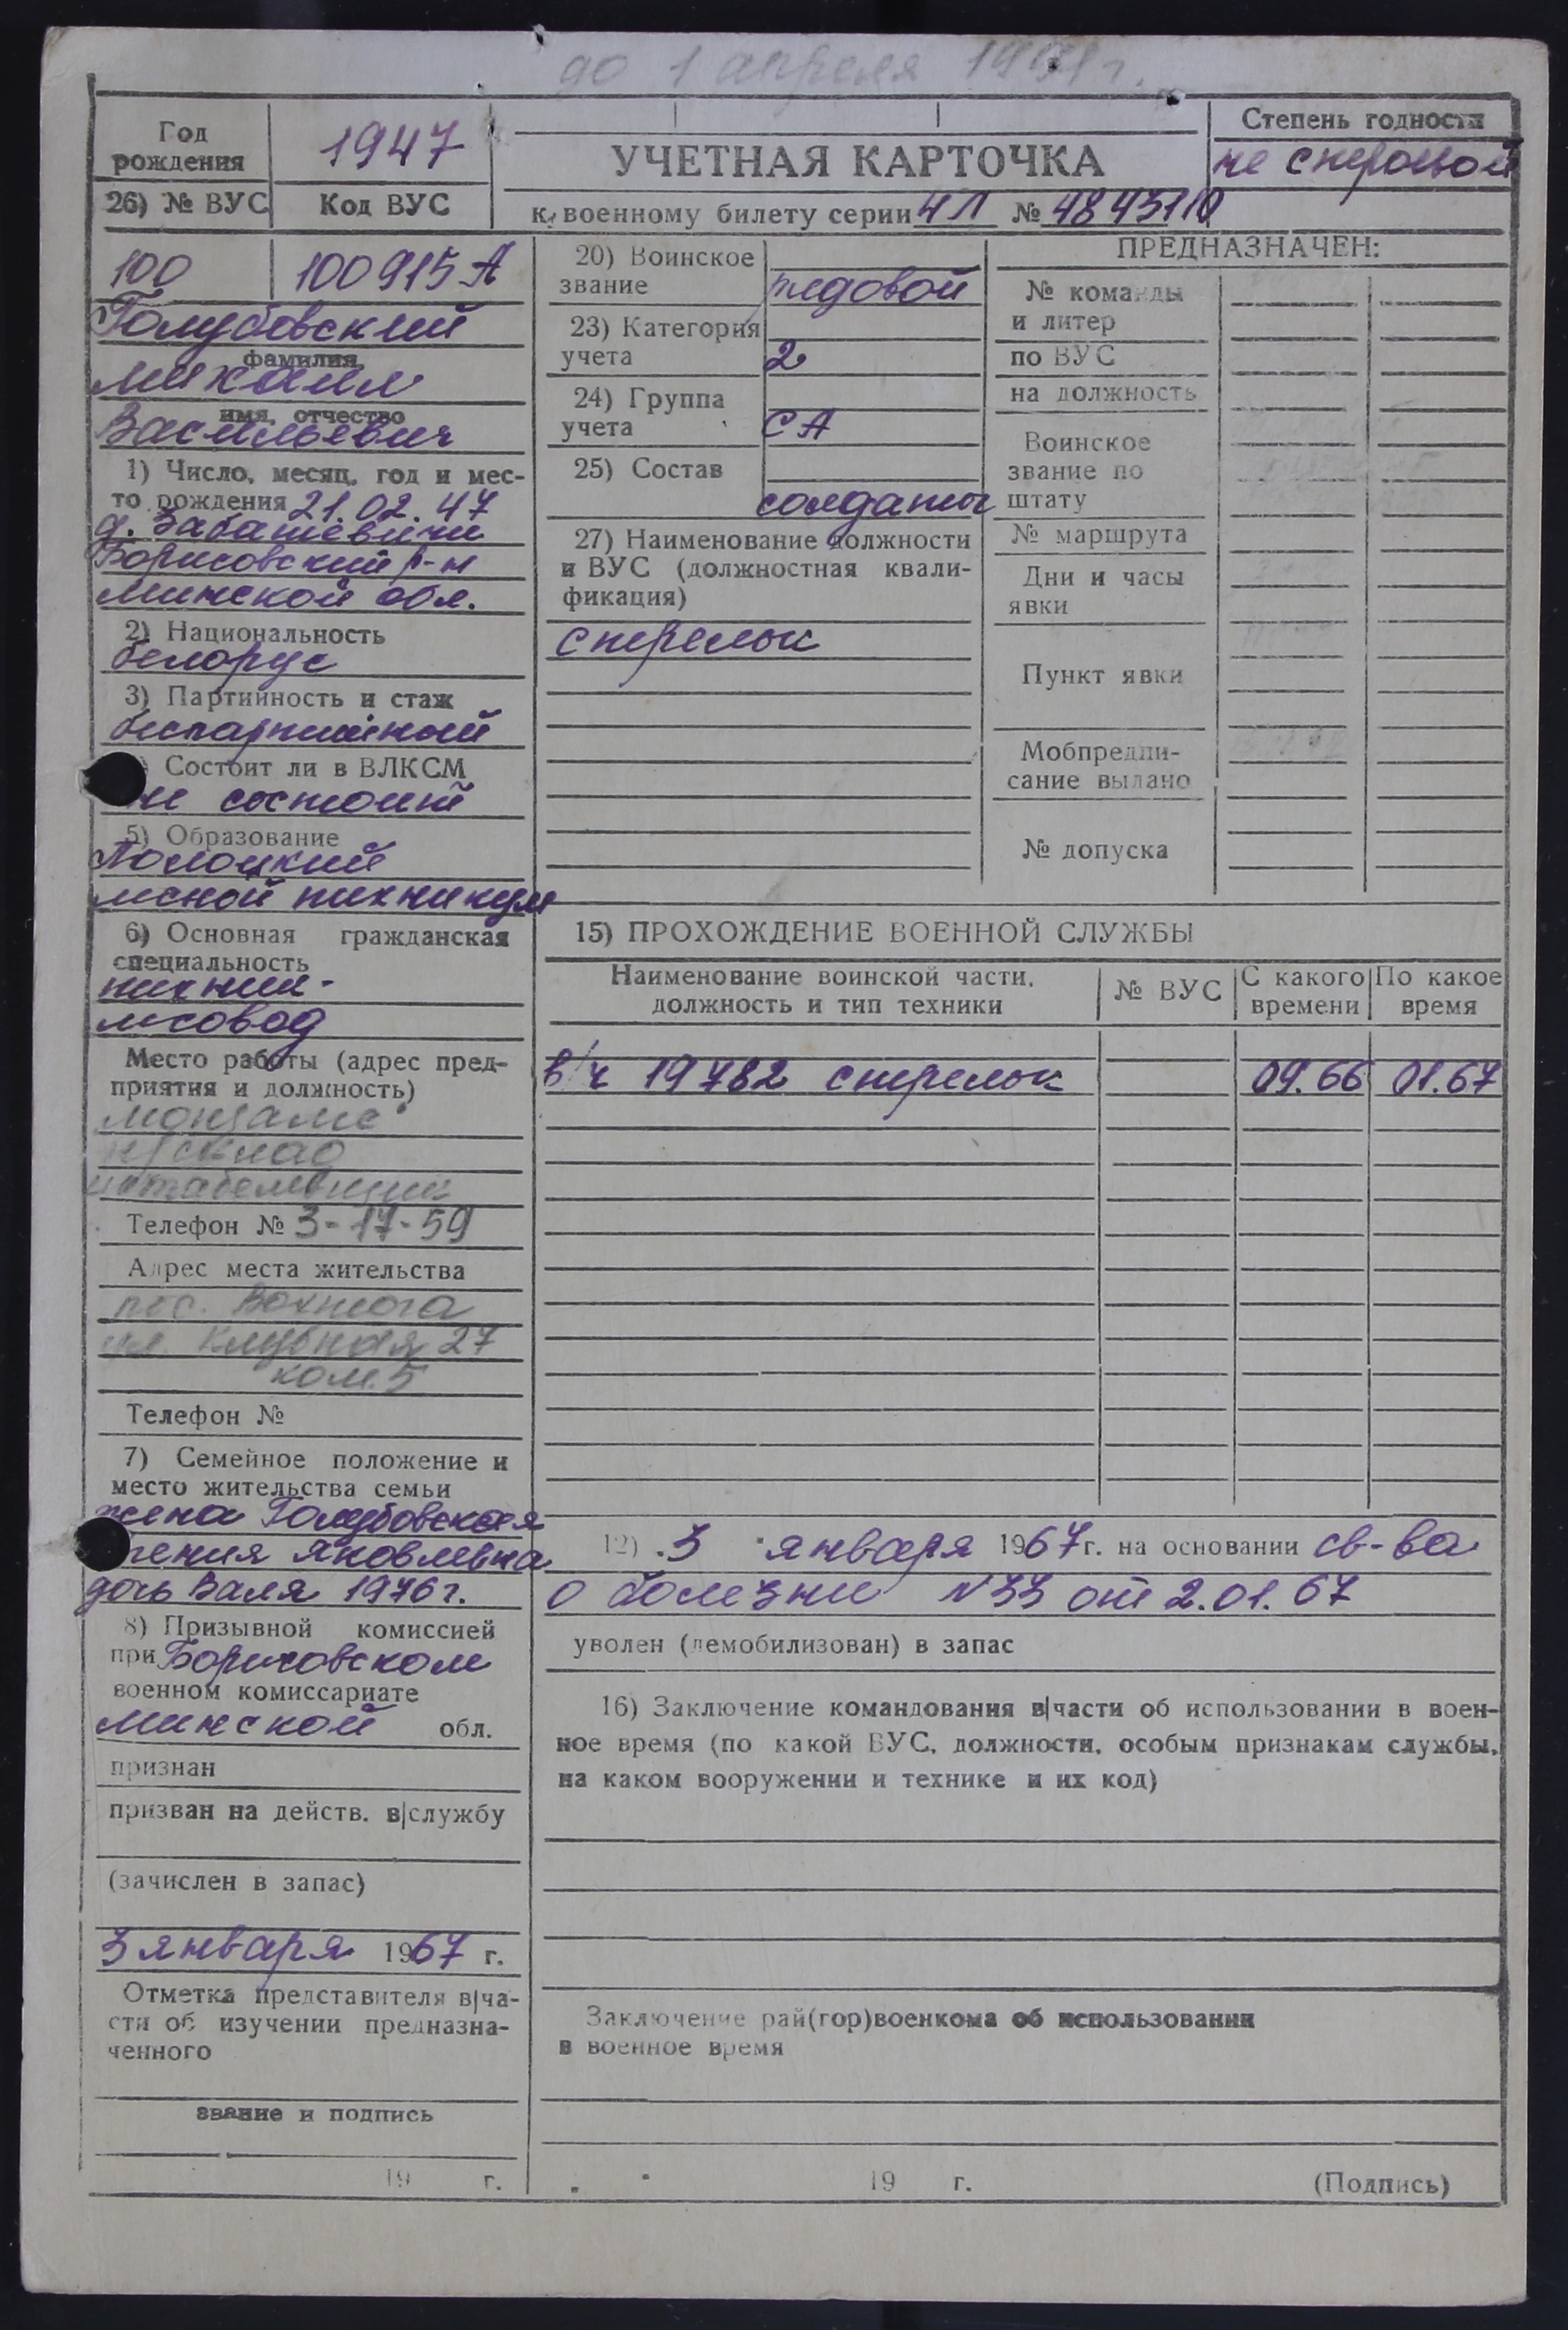 до 1 апреля 1991 г.
Год рождения
1947
УЧЕТНАЯ КАРТОЧКА
Степень годности
не строевой
26) № ВУС
Код ВУС
к военному билету серии НЛ №
100
100915 А
Голубовский
фамилия
Михаил
имя, отчество
Васильевич
1) Число, месяц, год и мес-
то рождения 21.02.47
д.
Борисовский р-н
Минской обл.
2) Национальность
белорус
3) Партийность и стаж
беспартийный
Состоит ли в ВЛКСМ
не состоит
5) Образование
Полоцкий
лесной техникум
6) Основная гражданская
специальность
техник-
лесовод
Место работы (адрес пред-
приятия и должность)
н/склад
штабелевщик
Телефон № 3-17-59
Адрес места жительства
пос. Вохтога
ул Клубная 27
ком. 5
Телефон №
7) Семейное положение и
место жительства семьи
жена Голубовская
Яковлевна
дочь Валя 1976 г.
8) Призывной комиссией
при Борисовском
военном комиссариате
Минской обл.
признан
призван на действ. в|службу
(зачислен в запас)
3 января 1967 г.
Отметка представителя в|ча-
сти об изучении предназна-
ченного
звание и подпись
19 г.
20) Воинское
звание
рядовой
23) Категория
учета 2
24) Группа
учета СА
25) Состав
солдаты
27) Наименование должности
и ВУС (должностная квали-
фикация)
стрелок
ПРЕДНАЗНАЧЕН:
№ команды
и литер
по ВУС
на должность
Воинское
звание по
штату
№ маршрута
Дни и часы
явки
Пункт явки
Мобпредпи-
сание выдано
№ допуска
15) ПРОХОЖДЕНИЕ ВОЕННОЙ СЛУЖБЫ
Наименование воинской части,
должность и тип техники
№ ВУС
С какого
времени
По какое
время
в/ч 19782 стрелок 09.66 01.67
12) 3 января 1967 г. на основании св-ва
о болезни N 33 от 2.01.67
уволен (демобилизован) в запас
16) Заключение командования в|части об использовании в воен-
ное время (по какой ВУС, должности, особым признакам службы,
на каком вооружении и технике и их код)
Заключение рай(гор)военкома об использовании
в военное время
19 г.
(Подпись)